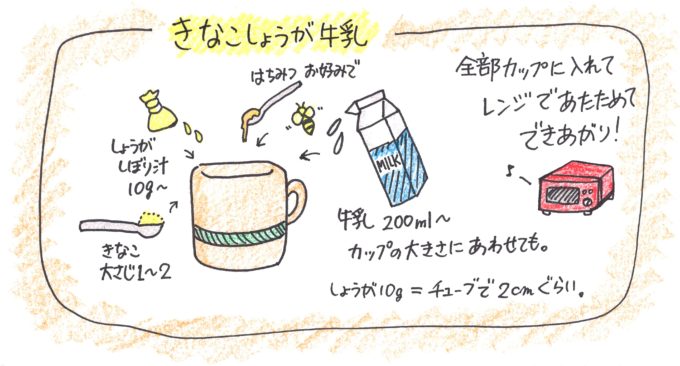 きなこしょうが牛乳
はちみつ お好みで
全部カップに入れて
レンジであたためて
できあがり!
しょうが
しぼり汁
10g〜
MILK
きなこ
大さじ1〜2
牛乳 200ml〜
カップの大きさにあわせても。
しょうが10g = チューブで2cmぐらい。